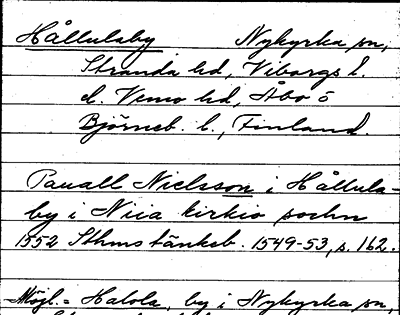 Hållulaby Nykyrka sn,
Stranda hd, Viborgs l.
el. Vemo hd, Åbo o
Björneb. l., Finland.
Pauall Nielsson i Hållula-
by i Niia kirkio sochn
1552 Sthms tänkeb. 1549-53, s. 162.
Möjl. = Halola, by i Nykyrka sn,